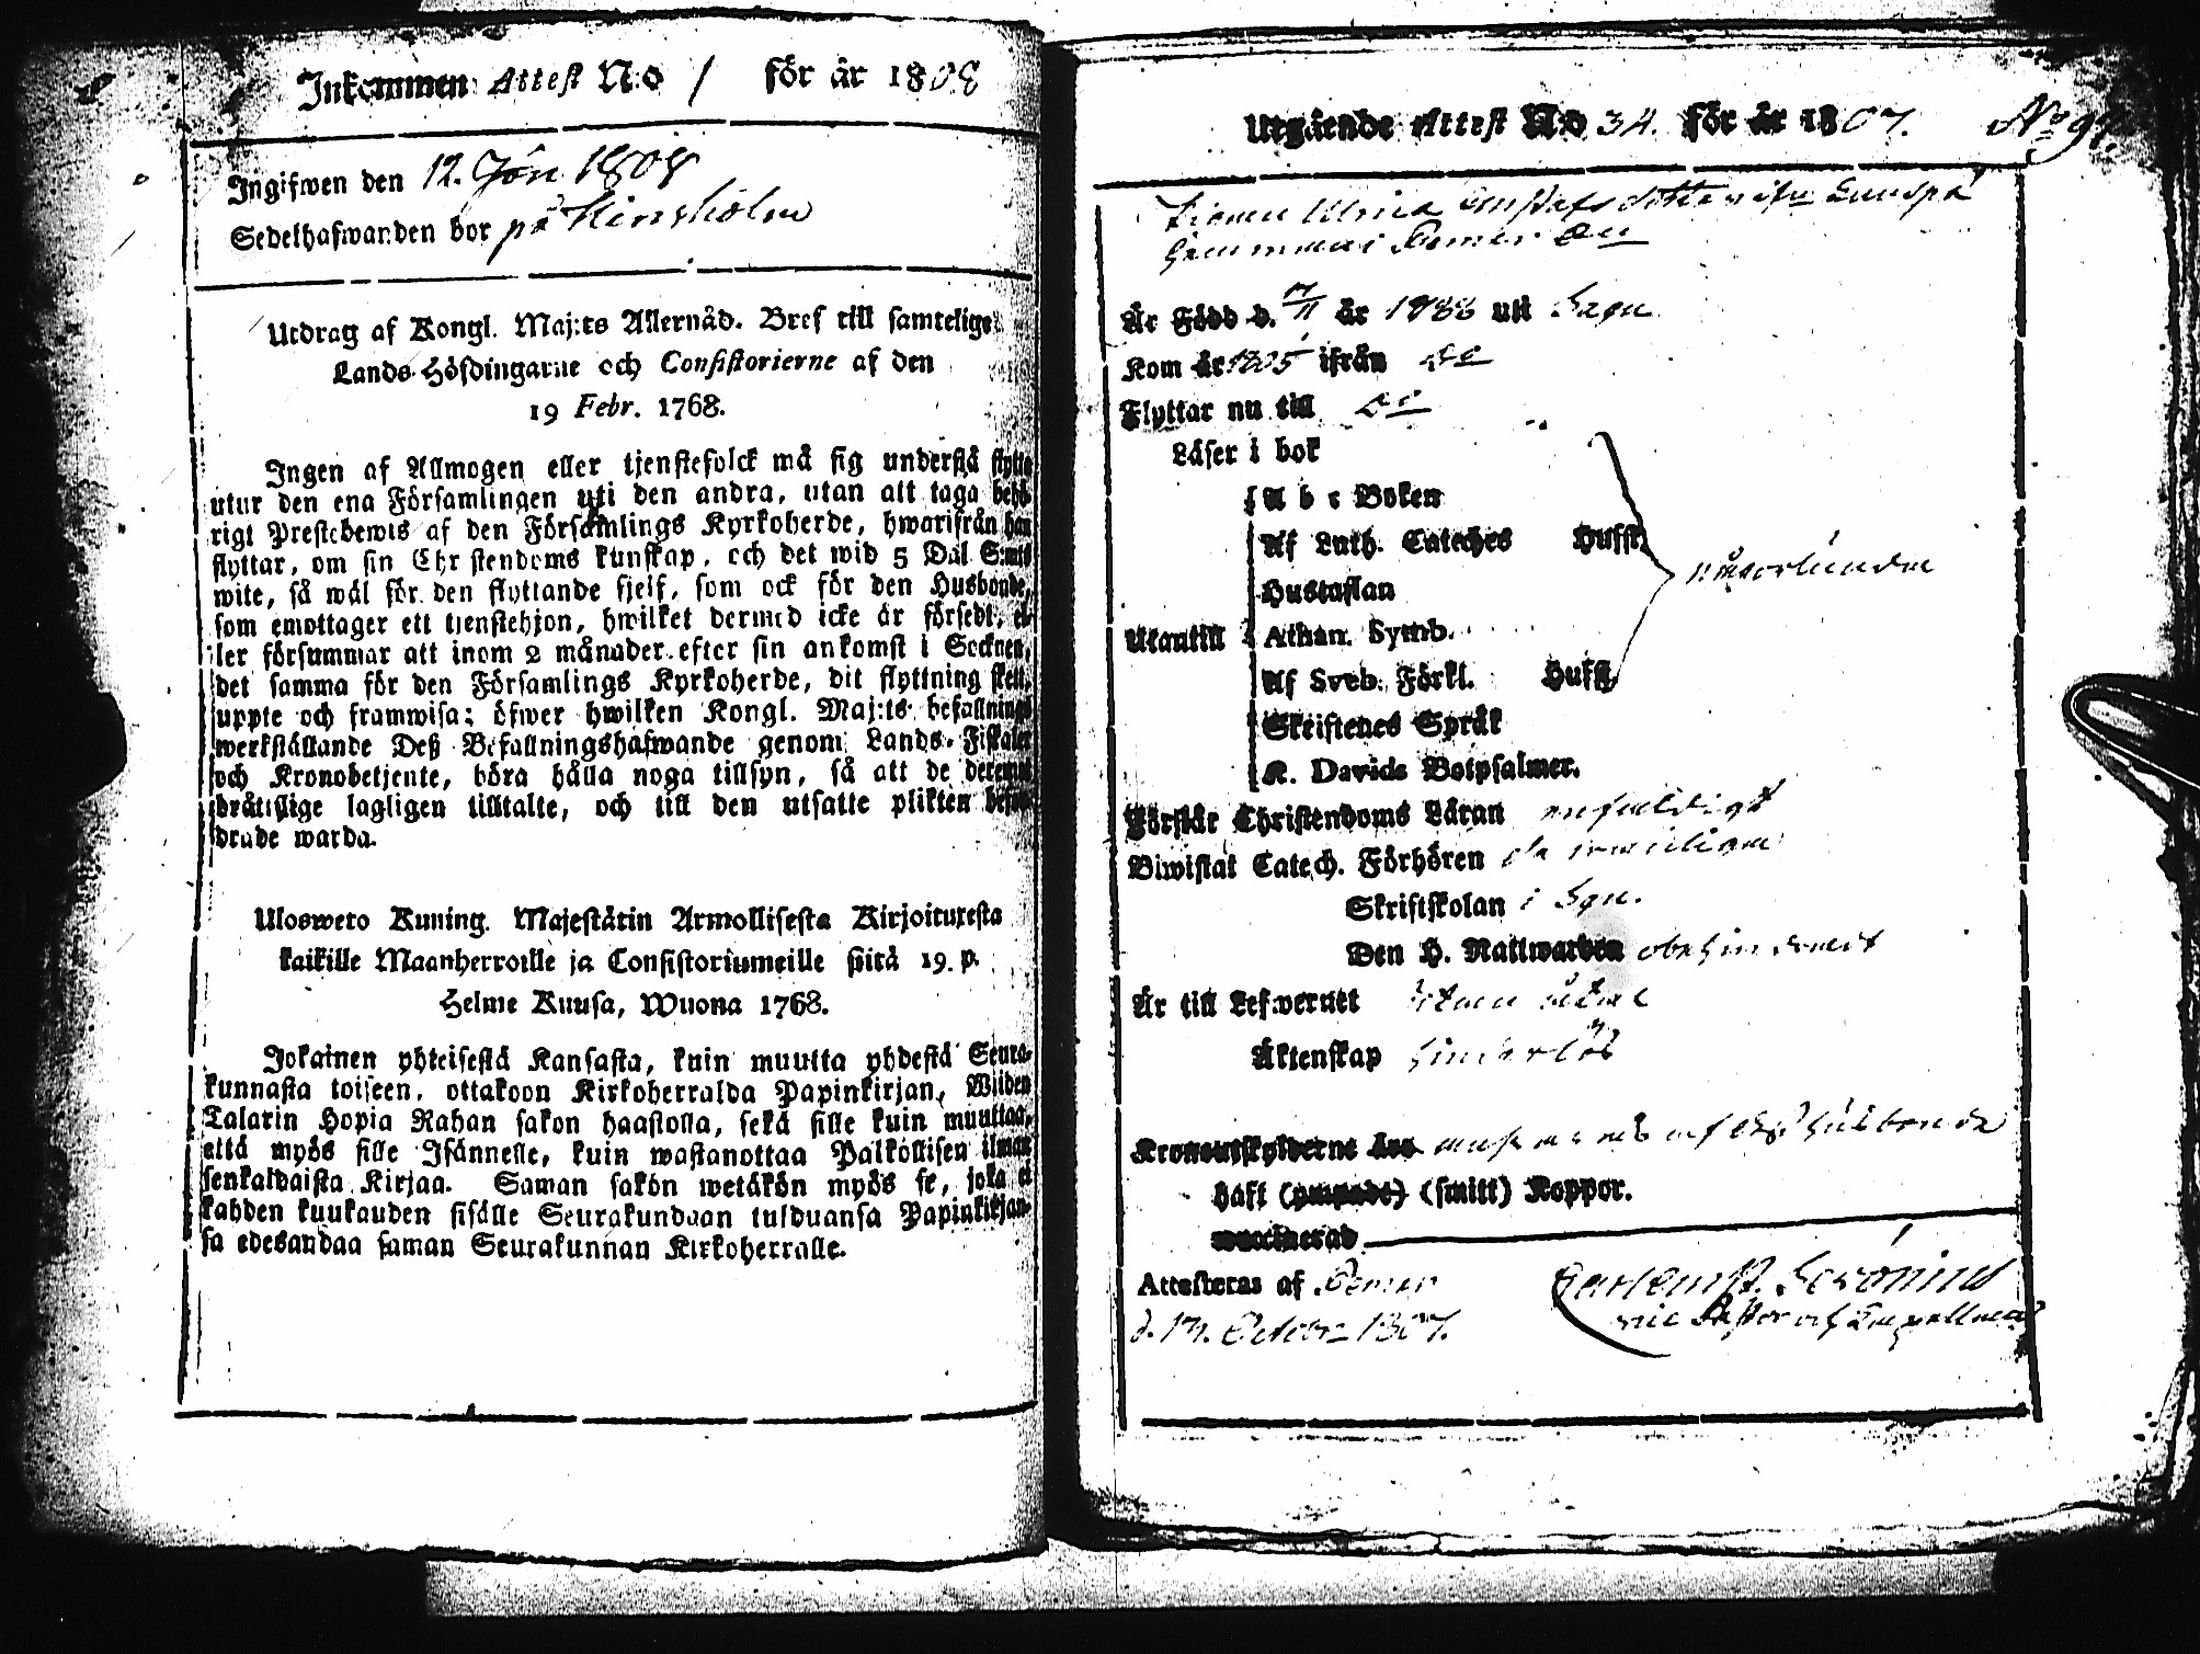 Inkommen Attest N:o 1 för år 1808
Ingifwen den 12. Jan 1808
Sedelhafwanden bor på
Utdrag af Kongl. Maj:ts Allernåd. Bref till samtelige
Lands-Höfdingarne och Consistorierne af den
19 Febr. 1768.
Ingen af Allmogen eller tjenstefolck må sig understå flytta
utur den ena Församlingen uti den andra, utan att taga behö-
rigt Prestebewis af den Församlings Kyrkoherde, hwarifrån han
flyttar, om sin Christendoms kunskap, och det wid 5 Dal S:mts
wite, så wäl för den flyttande sjelf, som ock för den Husbonde,
som emottager ett tjenstehjon, hwilket dermed icke är försedt, el-
ler försummar att inom 2 månader efter sin ankomst i Socknen,
det samma för den Församlings Kyrkoherde, dit flyttning skett,
uppte och framwisa; öfwer hwilken Kongl. Maj:ts befallnings
werkställande Deß Befallningshafwande genom Lands-Fiskaler
och Kronobetjente, böra hålla noga tillsyn, så att de deremot
bråttslige lagligen tilltalte, och till den utsatte plikten befor-
drade warda.
Ulosweto Kuning. Majestätin Armollisesta Kirjoituxesta
kaikille Maanherroille ja Consistoriumeille siitä 19. p.
Helme Kuusa, Wuona 1768.
Jokainen yhteisestä Kansasta, kuin muutta yhdestä Seura-
kunnasta toiseen, ottakoon Kirkoherralda Papinkirjan, Wiiden
Talarin Hopia Rahan sakon haastolla, sekä sille kuin muuttaa,
että myös sille Isännelle, kuin wastanottaa Palkollisen ilman
senkaldaista Kirjaa. Saman sakon wetäkön myös se, joka ei
kahden kuukauden sisälle Seurakundaan tulduansa Papinkirjan-
sa edesandaa saman Seurakunnan Kirkoherralle.
Utgående Attest No 34. för år 1807.
Ulrica Gustafsdotter
Är Född d. 7/11 år 1788 uti Sagu
Kom år 1805 ifrån do
Flyttar nu till do
Läser i bok
A b c Boken
Af Luth. Cateches Hufst.
Hustaflan
Utantill Athan. Symb.
Af Sveb. Förkl. Hufst.
Skriftenes Språk
K. Davids Botpsalmer.
Förstår Christendoms Läran enfaldigt
Biwistat Catech. Förhören
Skriftskolan i Sgu.
Den H. Nattwarden obehindrat
Är till Lefwernet
Äktenskap hinderlös
Kronoutskylderne
haft (ympade) (smitt) Koppor.
waccinerad
Attesteras af Pemar
d. 17. Octobr 1807.